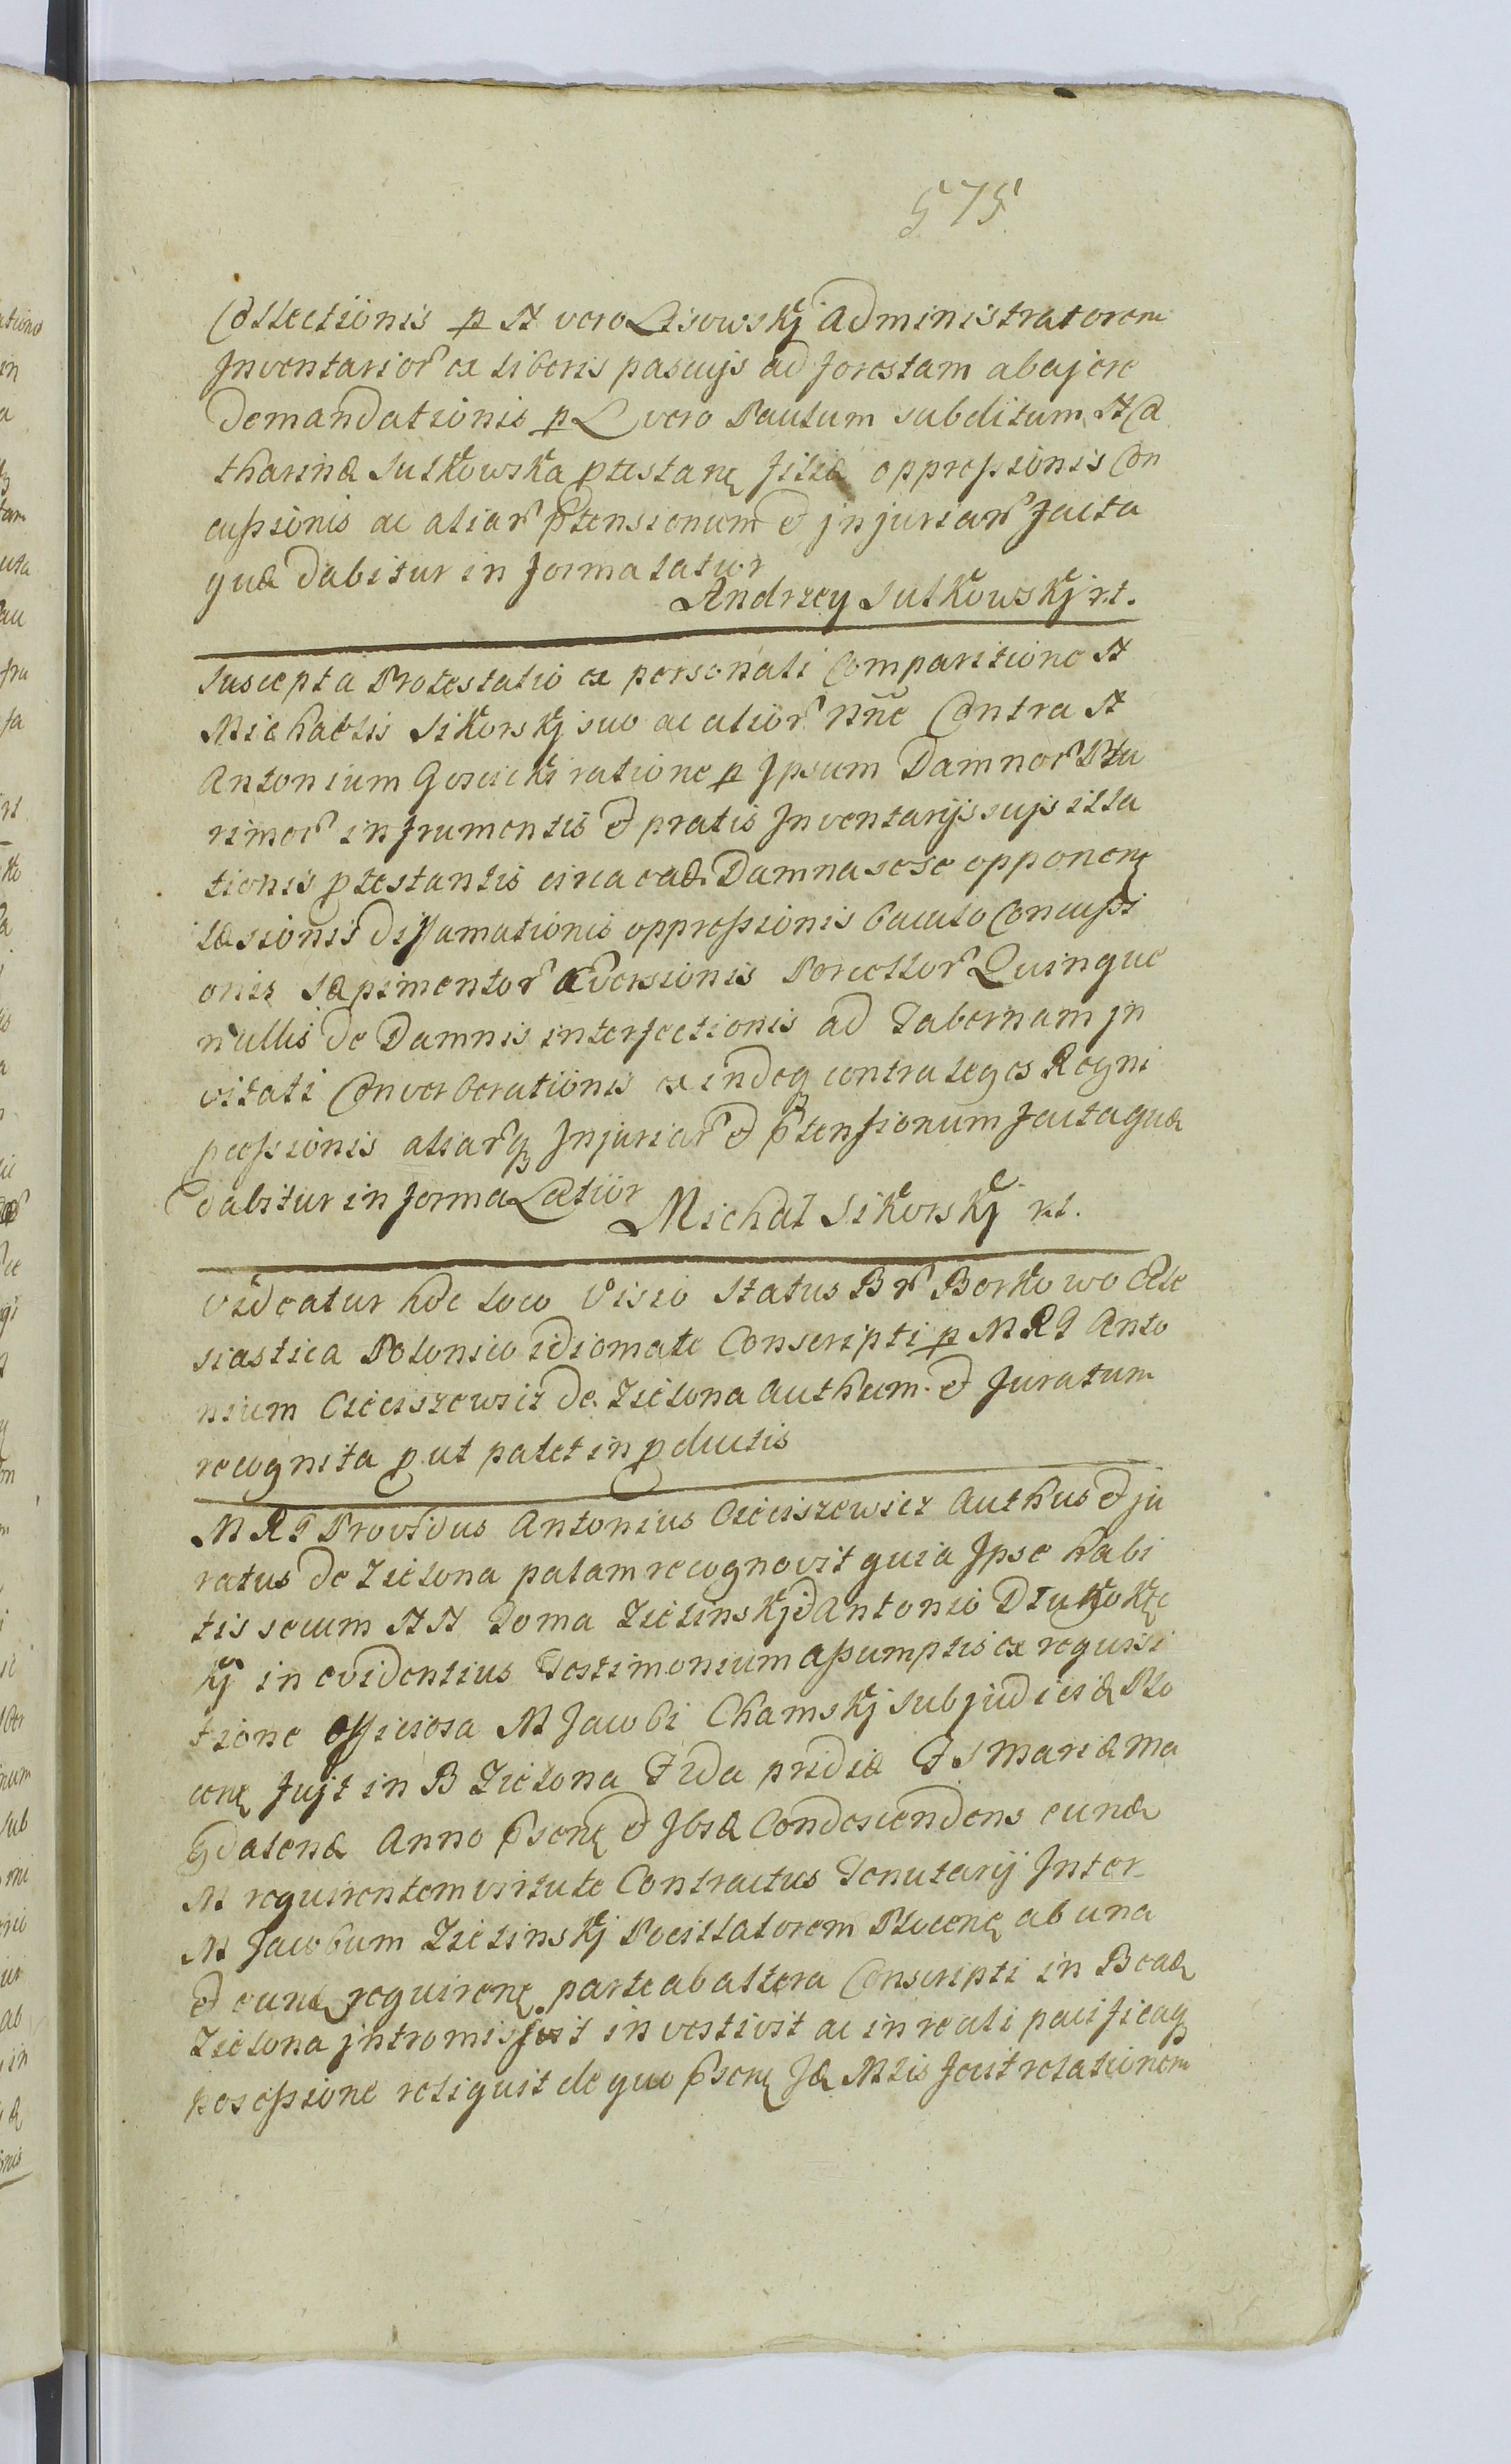 575
Collectionis p N vero Lisowskj Administratorem
Inventarior ex liberis pascujs ad forestam abajere
demandationis p L vero Paulum subditum N Ca
tharinæ Sutkowska ptestane filiæ oppressionis Con
cussionis ac aliar ptensionum et jnjuriar facta
quæ dabitur in forma latior
Andrzey Sutkowskj rt.
Suscepta Protestatio ex personali Comparitione N
Michaelis Sikorskj suo ac alior nne Contra N
Antonium Goscicki ratione p Ipsum Damnor Plu
rimor in frumentis et pratis Inventarijs sujs illa
tionis ptestantis circa ead Damna sese opponen
læsionis diffamationis oppressionis baculo Concussi
onis sæpimentor eversionis Porcellor Quinque
nullis de Damnis interfectionis ad Tabernam jn
vitati Conver berationis ex indeq contra leges Regni
pcessionis aliarq Injuriar et ptensionum facta quæ
dabitur in forma Latior
Michał Sikorskj rt.
Videatur hoc loco Visio Status Br Borkowo Ecle
siastica Polonico idiomate Conscripti p MRT Anto
nium Cieciszewicz de Zielona Authum et Juratum
recognita put patet in pductis
MRT Providus Antonius Cieciszewicz Authus et ju
ratus de Zielona palam recognovit quia Ipse habi
tis secum NN Toma Zielinskj et Antonio Dłu
kj in evidentius Testimonium assumptis ex requisi
tione officiosa M Jacobi Chamskj Subjudicis Plo
cen fujt in B Zielona fida pridiæ F S Mariæ Ma
gdalenæ Anno psen et Ibiæ Condescendens eund
M requirentem virtute Contractus Tenutarij Inter
M Jacobum Zielinskj Pocillatorem Plocen ab una
et eund requiren parte ab altera Conscripti in B ead
Zielona jntromissit investivit ac in reali pacificaq
posessione reliquit de quo psen Jd Mlis fecit relationem